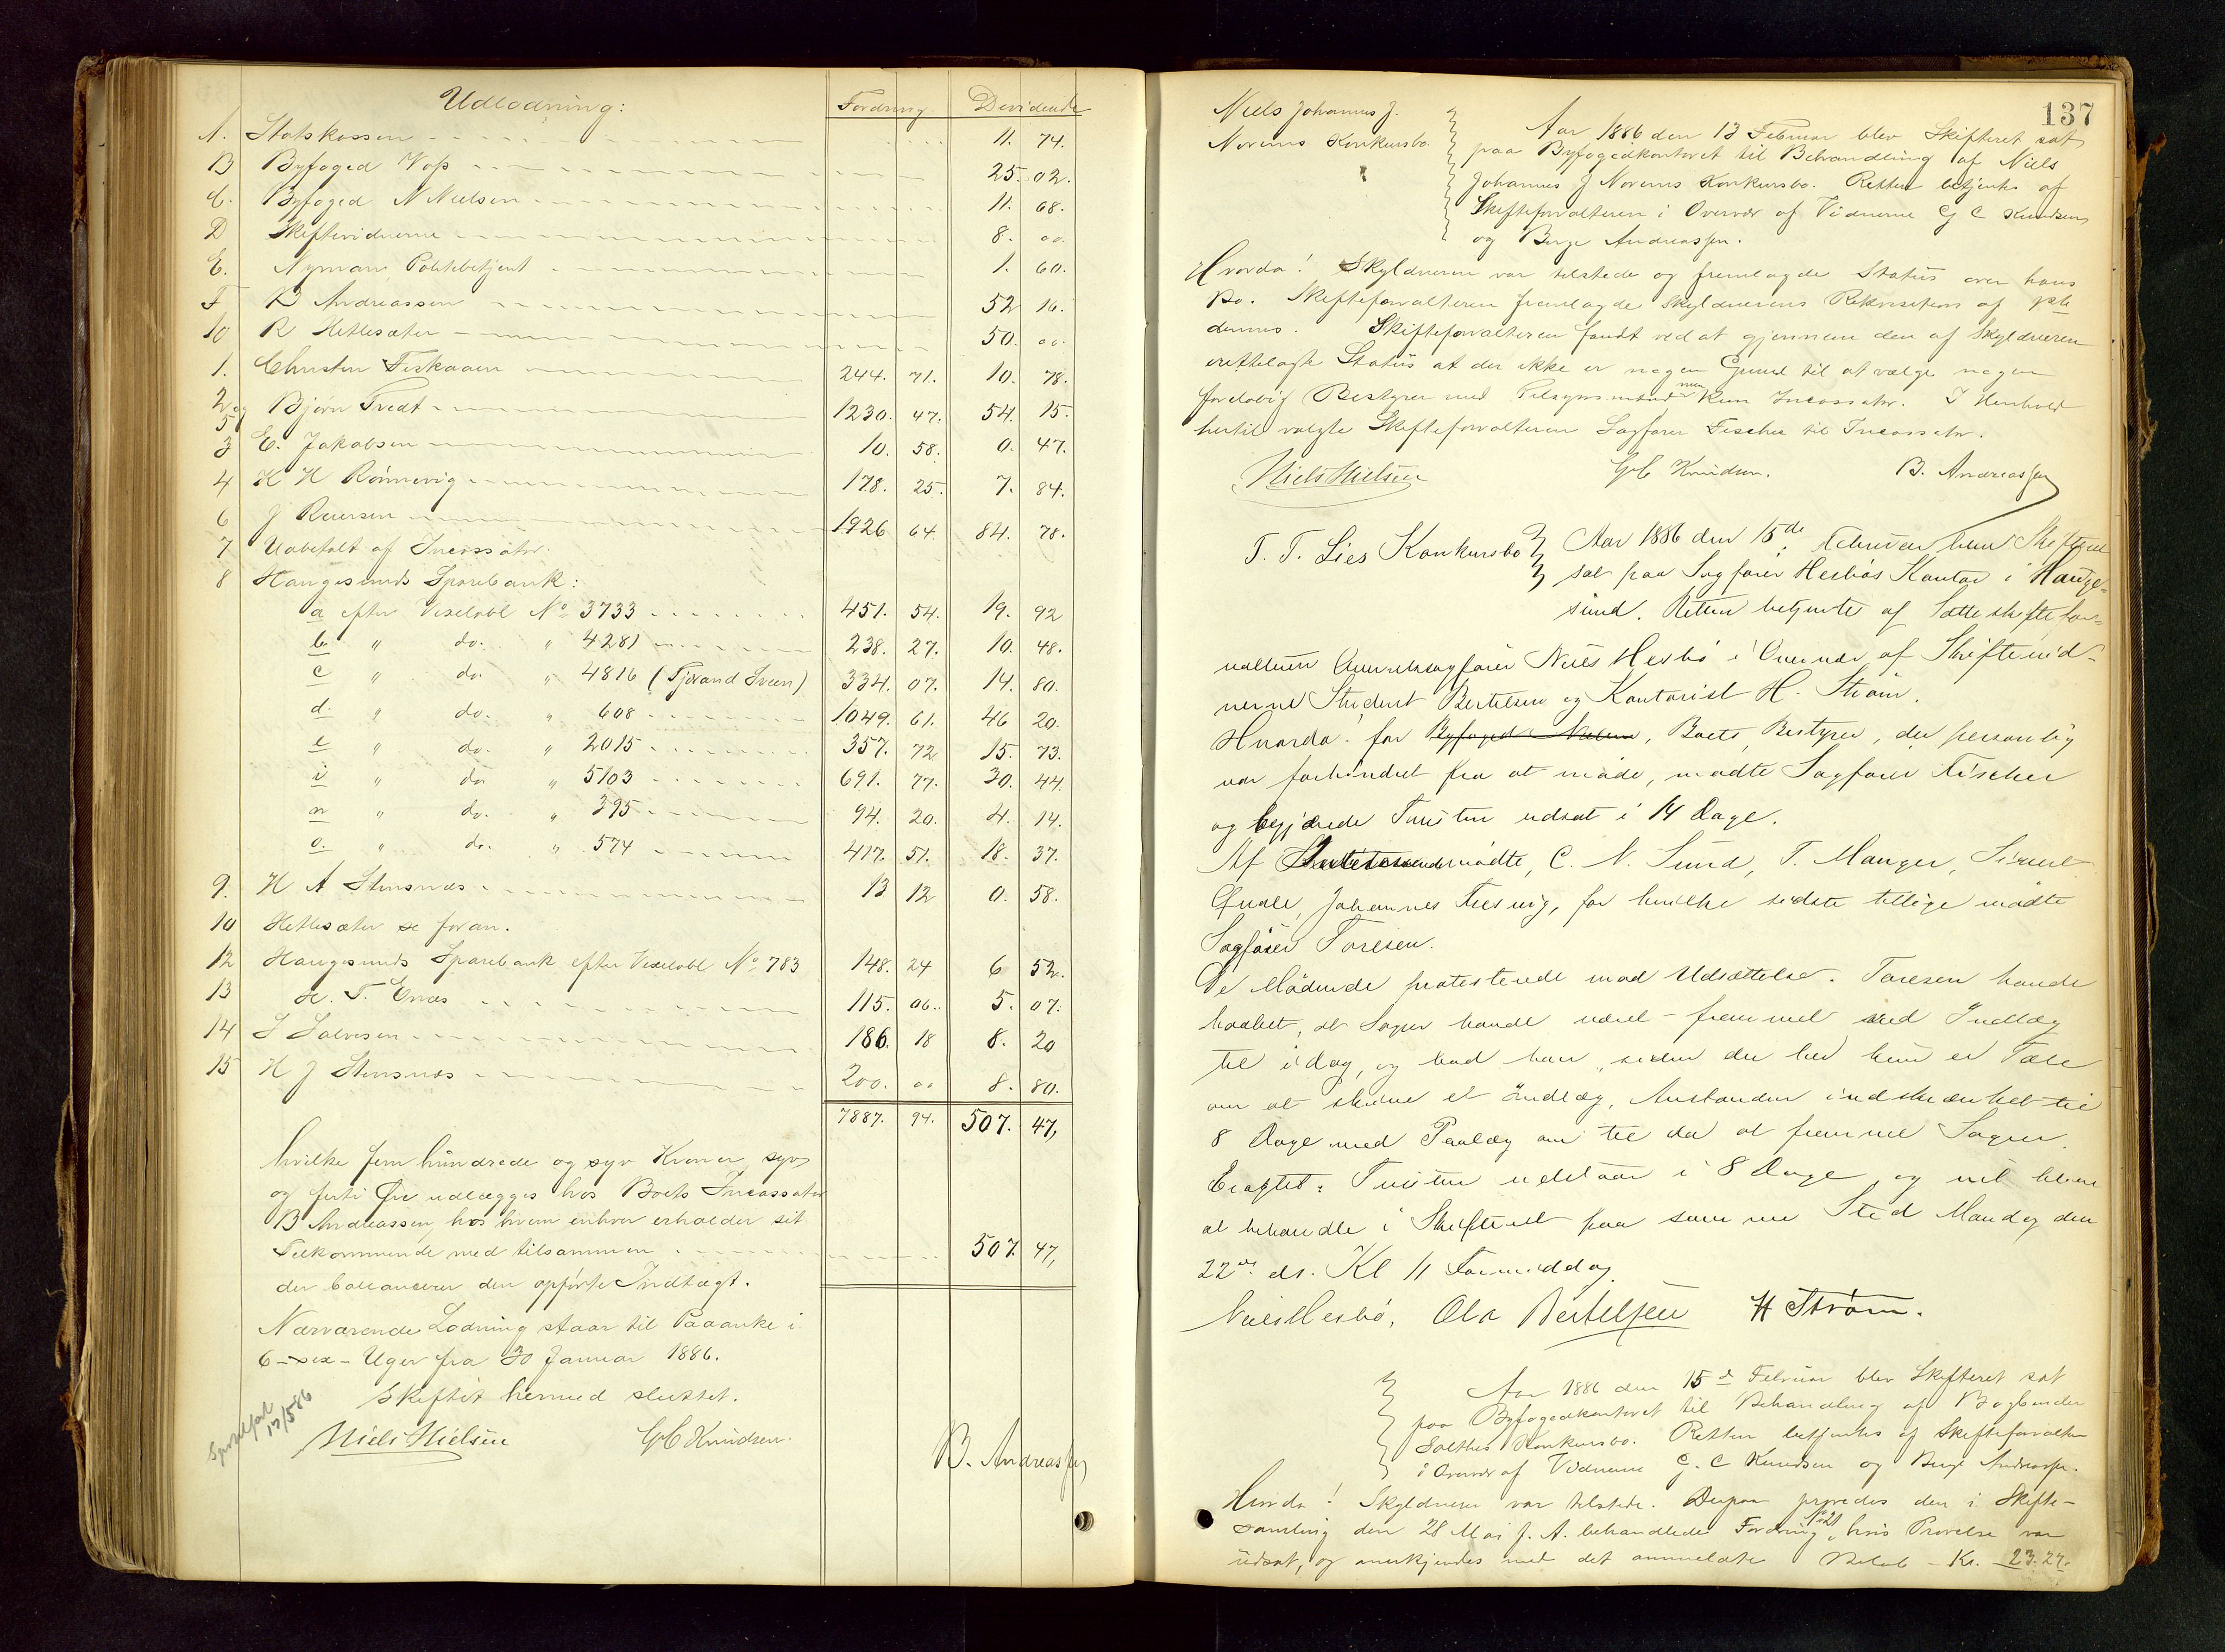 Udlodning: Fordring Dividende
A. Statskassen 11. 74.
B Byfoged Voss 25. 02.
C. Byfoged N Nielsen 11. 68.
D Skiftevidnerne 8. 00.
E. Nyman, Politibetjent 1. 60.
F B Andreassen 52 16.
10 R Hetlesæter 50. 00.
1. Christen Fiskaaen 244. 71. 10. 78.
2 og 5 Bjørn Tvedt 1230. 47. 54. 15.
3 E. Jakobsen 10. 58. 0. 47.
4 K H Rønnevig 178. 25. 7. 84.
6 J Reiersen 1926 64. 84. 78.
7 Uabetalt af Incassator.
8 Haugesunds Sparebank:
a efter Vexelobl No 3733 451. 54. 19. 92
b " do. " 4281 238. 27. 10. 48.
c " do. " 4816 (Tjerand Sveen) 334. 07. 14. 80.
d. " do. " 608 1049. 61. 46 20.
e " do. " 2015 357. 72 15. 73.
i " do " 5103 691. 77. 30. 44.
n " do. " 395 94. 20. 4. 14.
o. " do. " 574 417. 51. 18. 37.
9. H A Stensnæs 13 12 0. 58.
10 Hetlesæter se foran.
12 Haugesunds Sparebank efter Vexelobl No 783 148. 24 6 52.
13 H. T. Enæs 115. 06. 5. 07.
14 S Salvesen 186. 18 8. 20
15 H J Stensnæs 200. 00 8. 80.
7887. 94. 507. 47,
hvilke fem hundrede og syv Kroner syv
og forti Øre udlægges hos Boets Incassator
B Andreassen, hos hvem enhver erholder sit
Tilkommende med tilsammen 507. 47,
der ballancerer den opførte Indtægt.
Nærværende Lodning staar til Paaanke i
6 - sex - Uger fra 30 Januar 1886.
Skiftet hermed sluttet.
17/5 86
Niels Nielsen GC Knudsen. B. Andreassen
137
Niels Johannes J.
Norems Konkursbo
Aar 1886 den 13 Februar blev Skifteret sat
paa Byfogedkontoret til Behandling af Niels
Johannes J Norems Konkursbo. Retten betjentes af
Skifteforvalteren i Overvær af Vidnerne G C Knudsen
og Berge Andreassen.
Hvorda! Skyldneren var tilstede og fremlagde Status over hans
Bo. Skifteforvalteren fremlagde Skyldnerens Rekvisition af
dennes. Skifteforvalteren fandt ved at gjennem den af Skyldneren
irettelagte Status at der ikke er nogen Grund til at vælge nogen
foreløbig Bestyrer med Tilsynsmænd men kun Incassator. I Henhold
hertil valgte Skifteforvalteren Sagfører Fischer til Incassator.
Niels Nielsen GC Knudsen. B. Andreassen
T. T. Lies Konkursbo
Aar 1886 den 15de Februar blev Skifteret
sat paa Sagfører Hesbøs Kontor i Hauge-
sund. Retten betjentes af Sætteskiftefor-
valteren Overretssagfører Niels Hesbø i Overvær af Skiftevid-
nerne Student Bertelsen og Kontorist H. Strøm.
Hvorda: for Byfoged Nielsen, Boets Bestyrer, der personlig
var forhindret fra at møde, mødte Sagfører Fischer
og begjærede Tvisten udsat i 14 Dage.
Af mødte, C. N. Sund, T. Manger, Simen
Qvale, Johannes Feesvig, for hvilke sidste tillige mødte
Sagfører Toresen.
De Mødende protesterede mod Udsættelse. Toresen havde
haabet, at Sagen havde været fremmet med Indlæg
til idag, og bad han, siden der her kun er Tale
om at skrive et Indlæg, Anstanden indskrænket til
8 Dage med Paalæg om til da at fremme Sagen.
Eragtet: Tvisten udstaar i 8 Dage og vil blive
at behandle i Skifteret paa samme Sted Mandag den
22de ds. Kl 11 Formiddag
Niels Hesbø, Ola Bertelsen H Strøm.
Aar 1886 den 15de Februar blev Skifteret sat
paa Byfogedkontoret til Behandling af Bogbinder
Salthes Konkursbo. Retten betjentes af Skifteforvalter
i Overvær af Vidnerne G. C Knudsen og Berge Andreassen.
Hvorda! Skyldneren var tilstede. Derpaa prøvedes den i Skifte-
samling den 28 Mai f. A. behandlede Fordring No 21, hvis Prøvelse var
udsat, og anerkjendes med det anmeldte Beløb - Kr. 23.27.